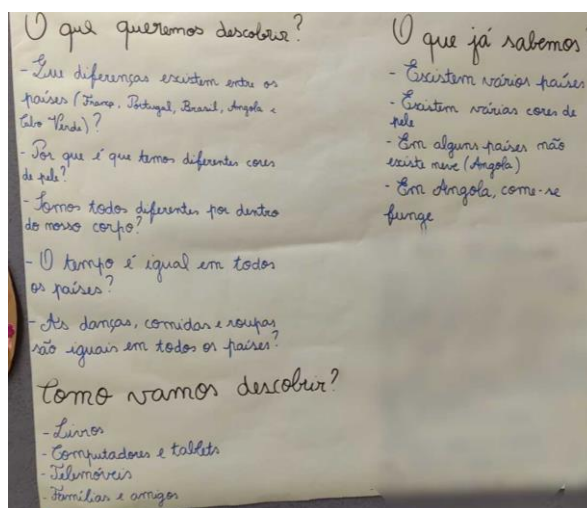 O que queremos descobrir?
- Que diferenças existem entre os
países (França, Portugal, Brasil, Angola e
Cabo Verde)?
- Por que é que temos diferentes cores
de pele?
- Somos todos diferentes por dentro
do nosso corpo?
- O tempo é igual em todos
os países?
- As danças, comidas e roupas
são iguais em todos os países?
Como vamos descobrir?
- Livros
- Computadores e tablets
- Telemóveis
- Famílias e amigos
O que já sabemos?
- Existem vários países
- Existem várias cores de
pele
- Em alguns países não
existe neve (Angola)
- Em Angola, come-se
funge